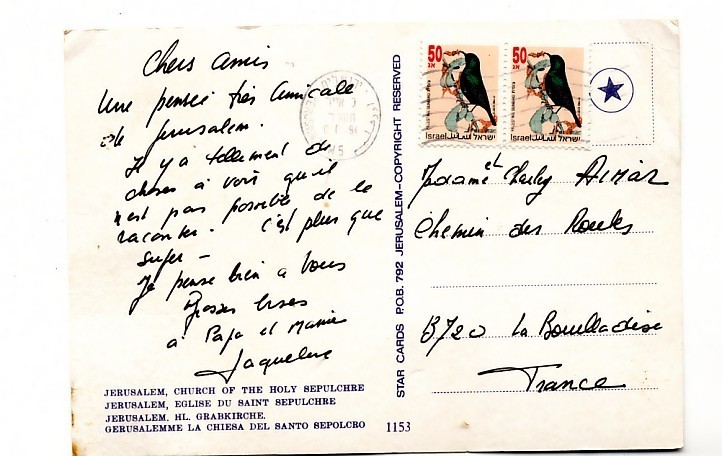 Chers amis
Une pensée très amicale
de Jerusalem.
Il y a tellement de
choses à voir qu'il
n'est pas possible de le
raconter. C'est plus que
super -
Je pense bien a vous
Grosses bises
à Papa et Mamie
Jaqueline
JERUSALEM, CHURCH OF THE HOLY SEPULCHRE
JERUSALEM, EGLISE DU SAINT SEPULCHRE
JERUSALEM. HL. GRABKIRCHE.
GERUSALEMME LA CHIESA DEL SANTO SEPOLCRO
1153
STAR CARDS P.O.B. 792 JERUSALEM–COPYRIGHT RESERVED
50
אג
Israel اسرائيل ישראל
50
אג
Israel اسرائيل ישראל
Madame et Charly
Chemin des
13720 La Bouilladisse
France